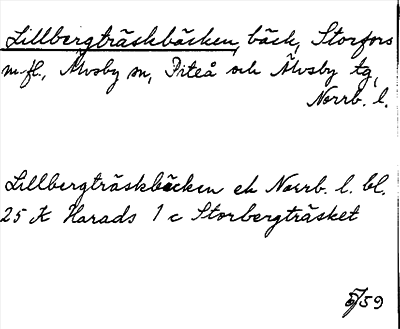 Lillbergträskbäcken, bäck, Storfors
m.fl., Älvsby sn, Piteå och Älvsby tg,
Norrb. l.
Lillbergträskbäcken ek Norrb. l. bl.
25 K Harads 1 c Storbergträsket
5/59